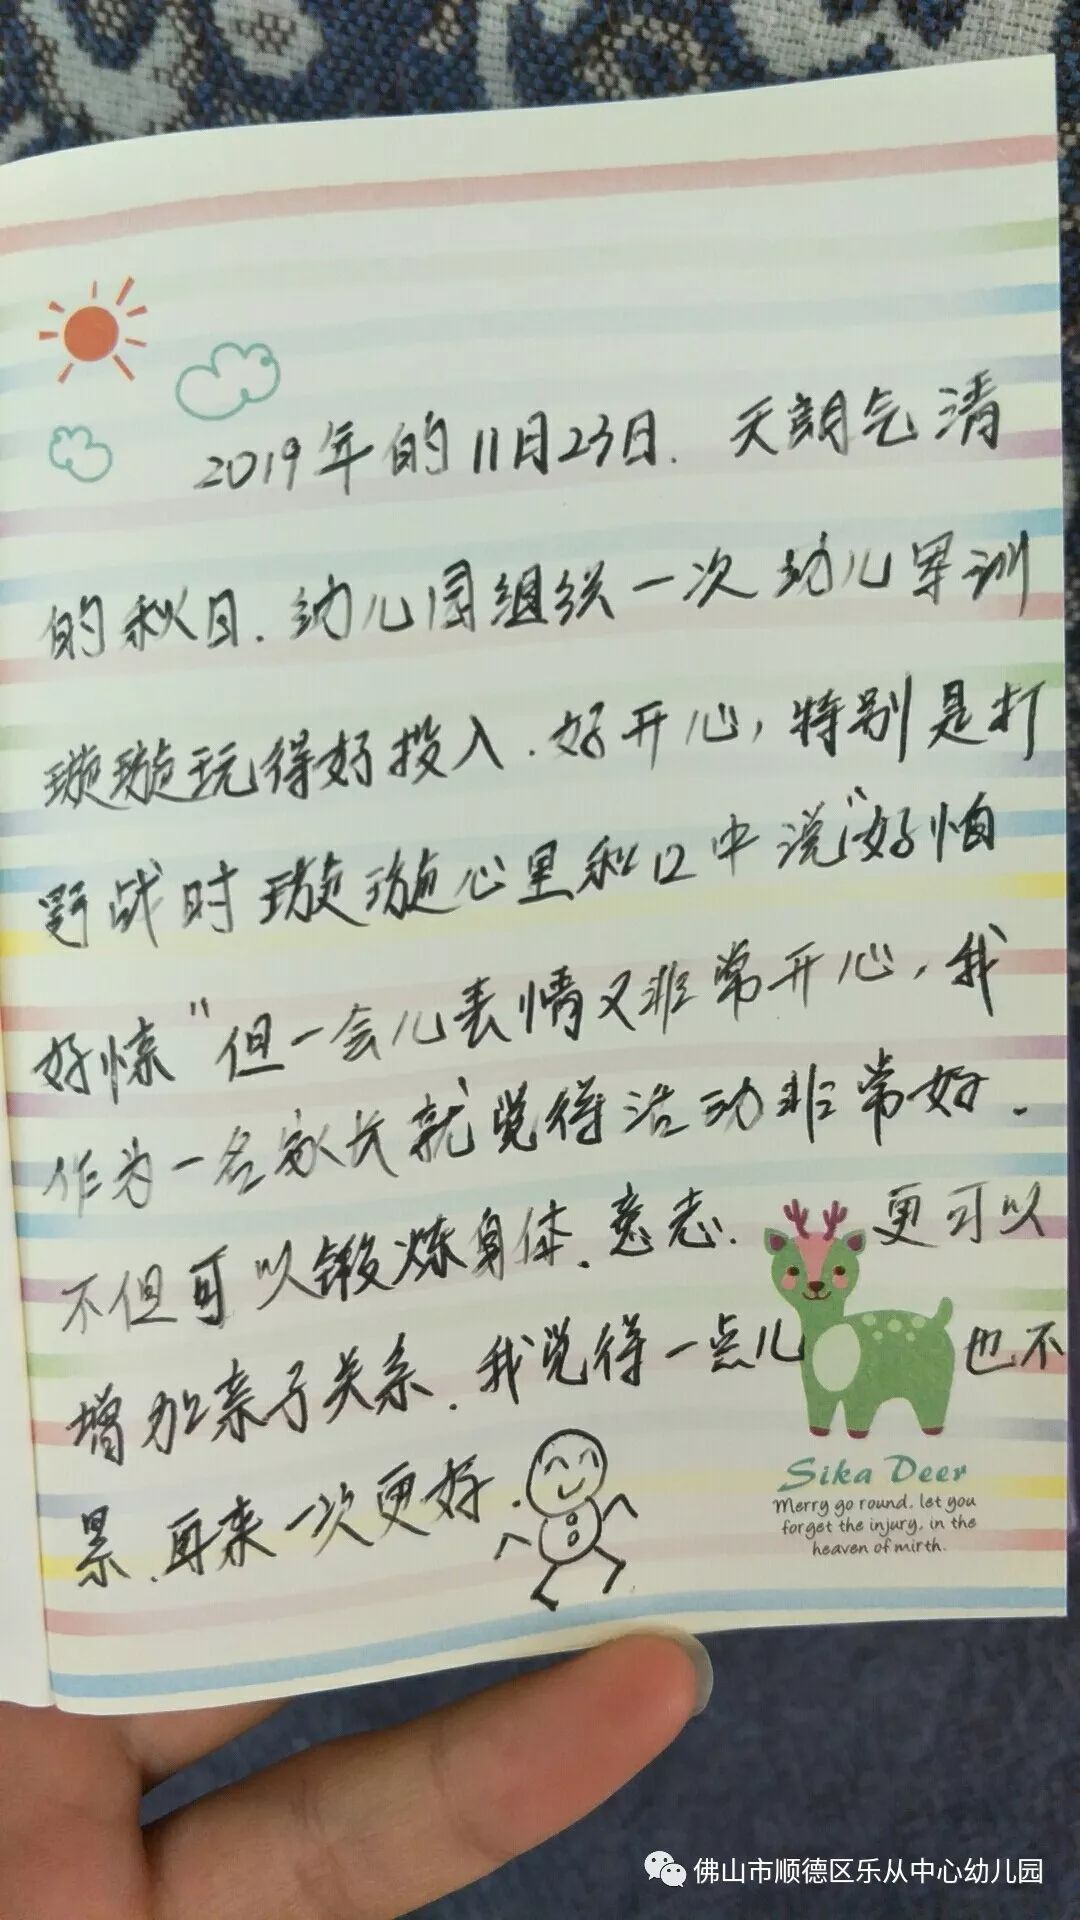 2019年的11月23日.天朗气清
的秋日.幼儿园组织一次幼儿军训
璇璇玩得好投入.好开心,特别是打
野战时璇璇心里和口中说“好怕
好惊”但一会儿表情又非常开心,我
作为一名家长就觉得活动非常好.
不但可以锻炼身体.意志.更可以
增加亲子关系.我觉得一点儿也不
累.再来一次更好.
Sika Deer
Merry go round, let you
forget the injury, in the
heaven of mirth.
佛山市顺德区乐从中心幼儿园